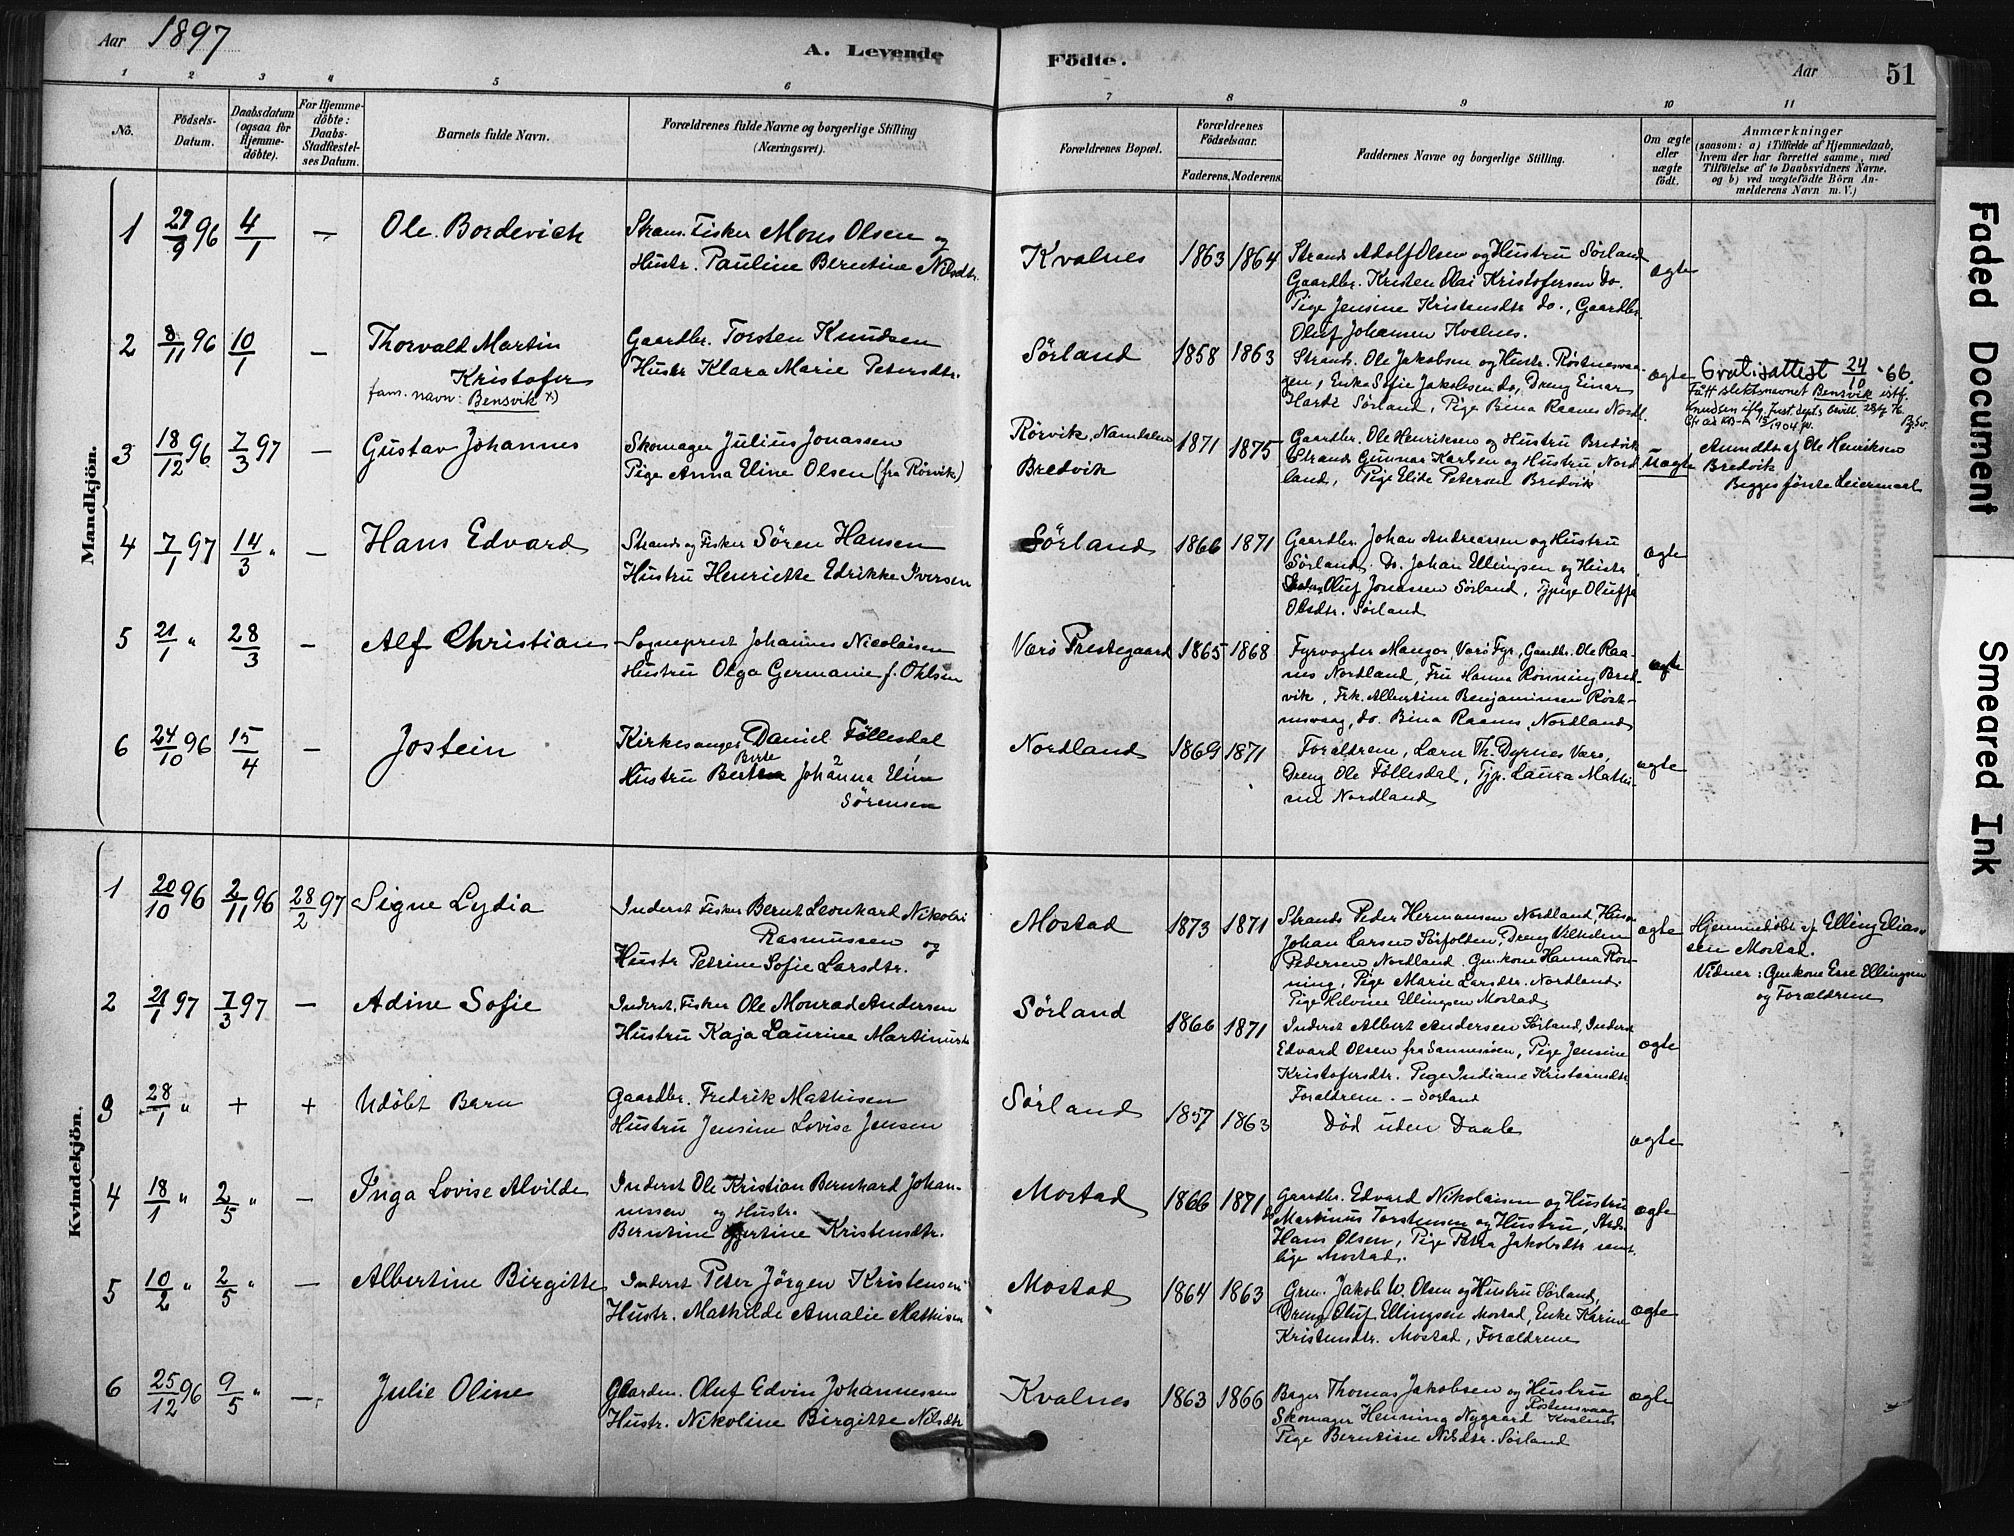 Aar 1897
A. Levende Födte.
Aar 51
1 2 3 4 5 6 7 8 9 10 11
No.
Födsels-Datum.
Daabsdatum (ogsaa for Hjemme-döbte).
For Hjemme-döbte: Daabs-Stadfæstel-ses Datum.
Barnets fulde Navn.
Forældrenes fulde Navne og borgerlige Stilling (Næringsvei).
Forældrenes Bopæl.
Forældrenes Födselsaar.
Faderens. Moderens.
Faddernes Navne og borgerlige Stilling.
Om ægte eller uægte födt.
Anmærkninger
(saasom: a) i Tilfælde af Hjemmedaab, hvem der har forrettet samme, med Tilföielse af to Daabsvidners Navne. og b) ved uægtefödte Börn An-melderens Navn m. V.)
Mandkjön.
1 27/9 96 4/1 — Ole Bordevich
Strans. Fisker Mons Olsen og
Hustr. Pauline Berntine Nilsdtr.
Kvalnes 1863 1864
Strands Adolf Olsen og Hustru Sörland
Gaardbr. Kristen Olai Kristofersen do.
Pige Jensine Kristensdtr do., Gaardbr.
Oluf Johansen Kvalnes.
ægte
2 8/11 96 10/1 — Thorvald Martin
Kristofer
fam. navn: Bensvik x)
Gaardbr. Torsten Knudsen
Hustr Klara Marie Petersdtr.
Sörland 1858 1863
Strands. Ole Jakobsen og Hustr. Røstnesvaa-
gen, Enke Sofie Jakobsen do, Dreng Einar
Hardt Sørland, Pige Bina Raanes Nordl.
ægte
Gratisattest 24/10-66.
Fått slektsnavnet Bensvik istf.
Knudsen iflg. Just. dept.s bevill.
3 18/12 96 7/3 97 — Gustav Johannes
Skomager Julius Jonassen
Pige Anna Eline Olsen (fra Rörvik)
Rörvik, Namdalen
Bredvik
1871 1875
Gaardbr. Ole Henriksen og Hustru Bredvik
Strands Gunnar Karlsen og Hustru Nord-
land, Pige Elide Petersen Bredvik
Uægte
Anmeldt af Ole Henriksen
Bredvik
Begges förste Leiermaal
4 7/1 97 14/3 " — Hans Edvard
Strands og Fisker Sören Hansen
Hustru Henriette Edrikke Iversen
Sörland 1866 1871
Gaardbr. Johan Andreassen og Hustru
Sörland. Do. Johan Ellingsen og Hustr.
Oluf Jonassen Sörland, Tjpige Oluffa
Olsdtr. Sörland
ægte
5 21/1 " 28/3 — Alf Christian
Sogneprest Johannes Nicolaisen
Hustru Olga Germanie f. Ohlsen
Værö Prestegaard 1865 1868
Fyrvogter Mangor, Værö Fyr, Gaardbr. Ole Raa-
nes Nordland, Fru Hanna Rönning Bred-
vik, Frk. Albertine Benjaminsen Röst-
nesvaag, do. Bina Raanes, Nordland
ægte
6 24/10 96 15/4 — Jostein
Kirkesanger Daniel Föllesdal
Hustru Berte Johanna Eline
Sörensen
Nordland 1869 1871
Forældrene, Lærer Th. Dyrnes Værö,
Dreng Ole Föllesdal, Tjp. Laura Mathi-
sen Nordland
ægte
Kvindekjön.
1 20/10 96 2/11 96 28/2 97 Signe Lydia
Inderst Fisker Bernt Leonhard Nikolai
Rasmussen og
Hustr Petrine Sofie Larsdtr.
Mostad 1873 1871
Strands Peder Hermansen Nordland, Husm
Johan Larsen Sörfolden, Dreng Vilhelm
Pedersen Nordland. Gmkone Hanna Rön-
ning, Pige Marie Larsdtr. Nordland.
Pige Helvine Ellingsen Mostad
ægte
Hjemmedöbt af Elling Elias-
sen Mostad.
Vidner: Gmkone Else Ellingsen
og Forældrene
2 21/1 97 7/3 97 — Adine Sofie
Inderst, Fisker Ole Monrad Andersen
Hustru Kaja Laurine Martinusdtr
Sörland 1866 1871
Inderst Albert Andersen Sörland, Inderst
Edvard Olsen fra Sannessöen, Pige Jensine
Kristofersdtr. Pige Indiane Kristiansdtr.
Forældrene. — Sörland
ægte
3 28/1 " + + Udöbt Barn
Gaardbr. Fredrik Mathisen
Hustru Jensine Lovise Jensen
Sörland 1857 1863
Död uden Daab
ægte
4 18/1 " 2/5 " — Inga Lovise Alvilde
Inderst Ole Kristian Bernhard Johan-
nessen og Hustr.
Berntine Kristensdtr.
Mostad 1866 1871
Gaardbr. Edvard Nikolaisen og Hustru
Martinus Torstensen og Hustru, Strds.
Hans Olsen, Pige Petra Jakobsdtr saml.
lige Mostad.
ægte
5 10/2 " 2/5 " — Albertine Birgitte
Inderst Peter Jörgen Kristensen
Hustr. Mathilde Amalie Mathisen
Mostad 1864 1863
Grm. Jakob W. Olsen og Hustru Sörland,
Dreng Oluf Ellingsen Mostad, Enke Karine
Kristensdtr. Mostad, Forældrene
ægte
6 25/12 96 9/5 " — Julie Oline
Gaardm. Oluf Edvin Johannessen
Hustr. Nikoline Birgitte Nilsdtr
Kvalnes 1863 1866
Bager Thomas Jakobsen og Hustru
Röstnesvaag
Skomager Henning Nygaard Kvalnes
Pige Berntine Nilsdtr. Sörland
ægte
Faded Document
Smeared Ink